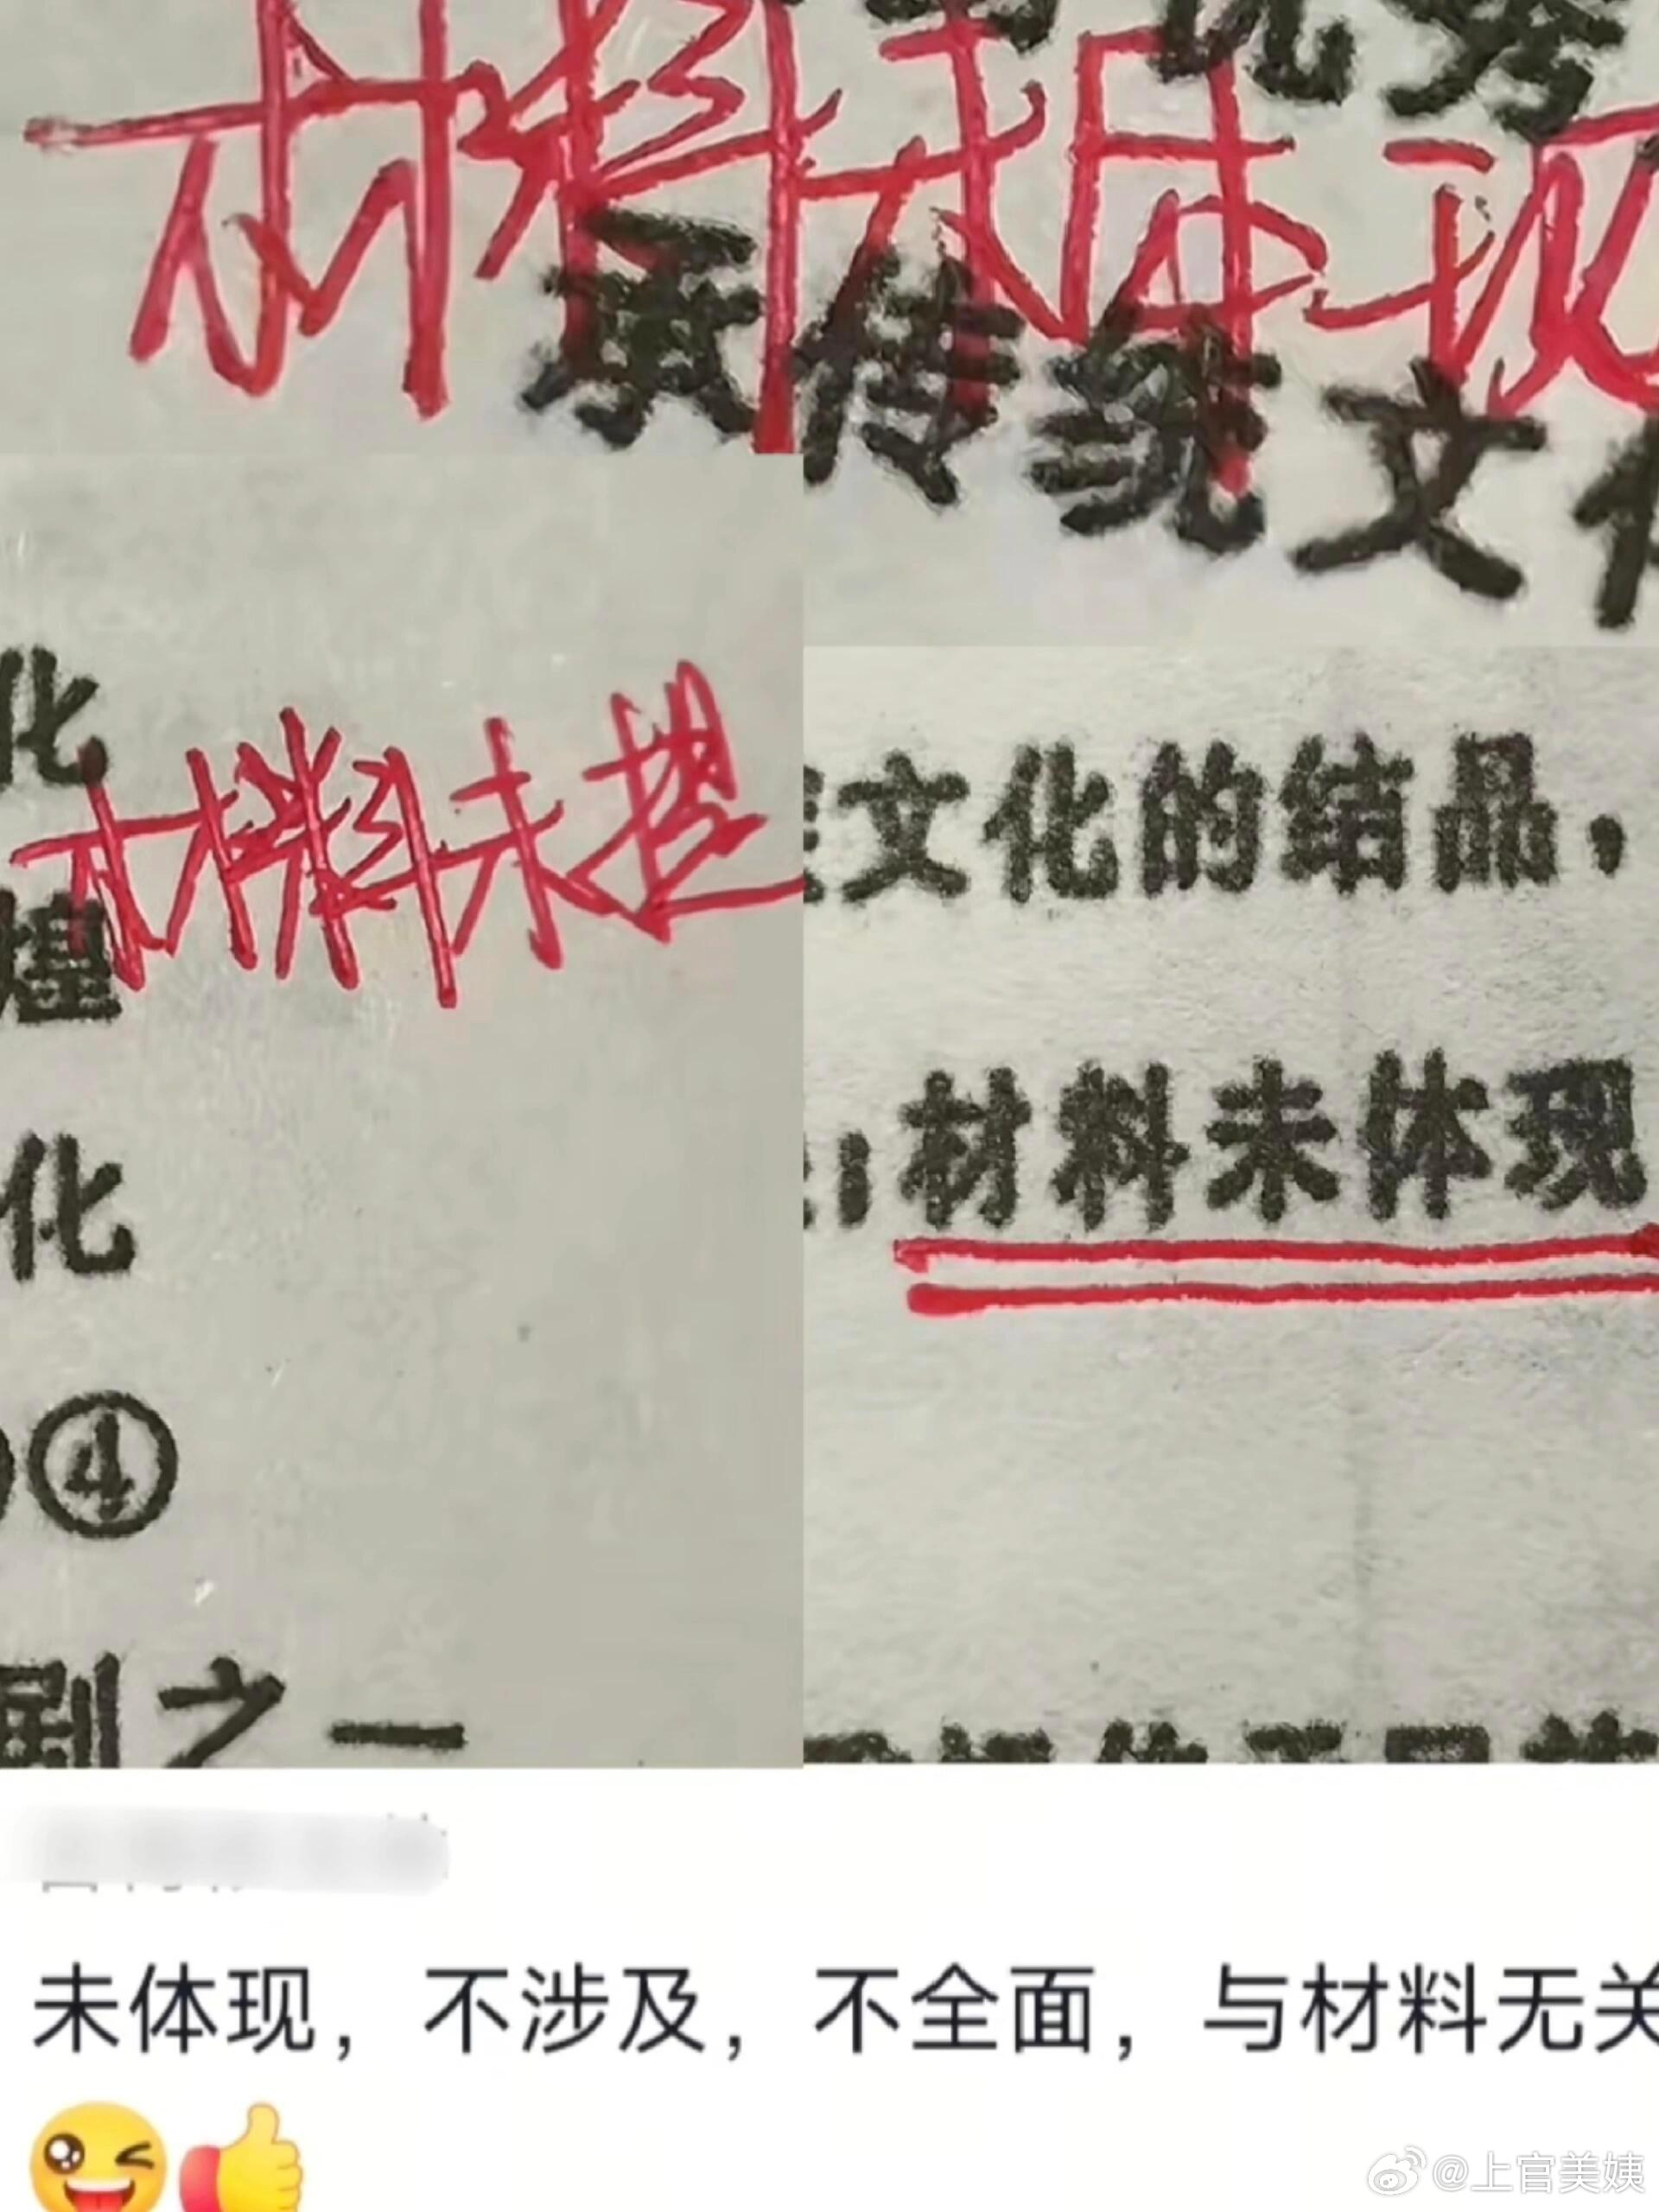 优秀
材料未体现
英传统文化
化
材料未提
煌
化
④
剧之一
文化的结晶，
材料未体现
未体现，不涉及，不全面，与材料无关
@上官美姨